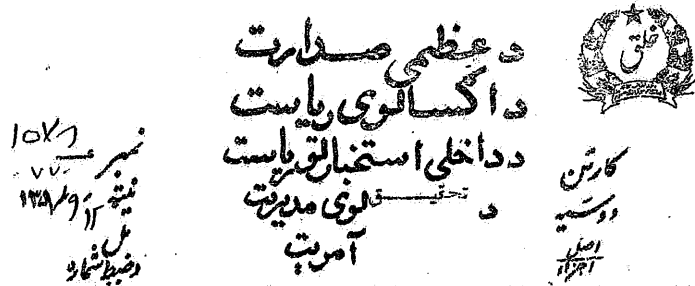 خلق
د عظمی صدارت
د اکسا لوی ریاست
د داخلی استخباراتو ریاست
د تحقیق لوی مدیریت
آمریت
کارتن
دوسیه
اصل
اجزاء
نمبر
نیټه
مل
د ضبط شماره